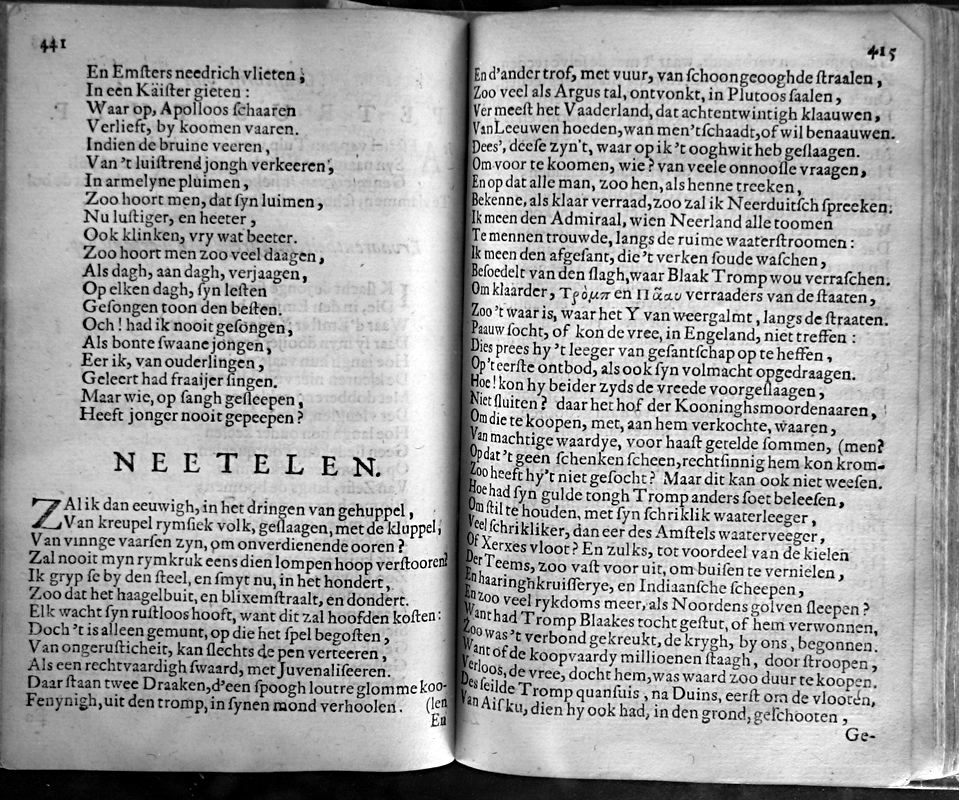 441
En Emſters needrich vlieten ;
In een Käiſter gieten :
Waar op, Apolloos ſchaaren
Verlieft, by koomen vaaren.
Indien de bruine veeren ,
Van 't luiſtrend jongh verkeeren ,
In armelyne pluimen ,
Zoo hoort men, dat ſyn luimen ,
Nu luſtiger, en heeter ,
Ook klinken, vry wat beeter.
Zoo hoort men zoo veel daagen ,
Als dagh, aan dagh, verjaagen ,
Op elken dagh, ſyn leſten
Geſongen toon den beſten.
Och ! had ik nooit geſongen ,
Als bonte ſwaane jongen ,
Eer ik, van ouderlingen ,
Geleert had fraaijer ſingen.
Maar wie, op ſangh geſleepen ,
Heeft jonger nooit gepeepen ?
NEETELEN.
ZAl ik dan eeuwigh, in het dringen van gehuppel ,
Van kreupel rymſiek volk, geſlaagen, met de kluppel,
Van vinnge vaarſen zyn, om onverdienende ooren ?
Zal nooit myn rymkruk eens dien lompen hoop verſtooren?
Ik gryp ſe by den ſteel, en ſmyt nu, in het hondert ,
Zoo dat het haagelbuit, en blixemſtraalt, en dondert.
Elk wacht ſyn ruſtloos hooft, want dit zal hoofden koſten:
Doch 't is alleen gemunt, op die het ſpel begoſten ,
Van ongeruſticheit, kan ſlechts de pen verteeren ,
Als een rechtvaardigh ſwaard, met Juvenaliſeeren.
Daar ſtaan twee Draaken, d'een ſpoogh loutre glomme koo-
Fenynigh, uit den tromp, in ſynen mond verhoolen . (len
En
415
En d'ander trof, met vuur, van ſchoongeooghde ſtraalen ,
Zoo veel als Argus tal, ontvonkt, in Plutoos ſaalen ,
Vermeeſt het Vaaderland, dat achtentwintigh klaauwen ,
Van Leeuwen hoeden, wan men't ſchaadt, of wil benaauwen.
Dees', deeſe zyn't, waar op ik 't ooghwit heb geſlaagen.
Om voor te koomen, wie ? van veele onnooſle vraagen ,
En op dat alle man, zoo hen, als henne treeken ,
Bekenne, als klaar verraad, zoo zal ik Neerduitſch ſpreeken:
Ik meen den Admiraal, wien Neerland alle toomen
Te mennen trouwde, langs de ruime waaterſtroomen :
Ik meen den afgeſant, die 't verken ſoude waſchen ,
Beſoedelt van den ſlagh, waar Blaak Tromp wou verraſchen.
Om klaarder, Τρὸμπ en Πᾶαυ verraaders van de ſtaaten ,
Zoo 't waar is, waar het Y van weergalmt , langs de ſtraaten.
Paauw ſocht, of kon de vree, in Engeland, niet treffen :
Dies prees hy 't leeger van geſantſchap op te heffen ,
Op 't eerſte ontbod, als ook ſyn volmacht opgedraagen.
Hoe! kon hy beider zyds de vreede voorgeſlaagen ,
Niet ſluiten ? daar het hof der Kooninghsmoordenaaren ,
Om die te koopen, met, aan hem verkochte, waaren ,
Van machtige waardye, voor haaſt getelde ſommen, (men?
Op dat 't geen ſchenken ſcheen, rechtſinnig hem kon krom-
Zoo heeft hy't niet geſocht ? Maar dit kan ook niet weeſen.
Hoe had ſyn gulde tongh Tromp anders ſoet beleeſen ,
Om ſtil te houden, met ſyn ſchriklik waaterleeger ,
Veel ſchrikliker, dan eer des Amſtels waaterveeger ,
Of Xerxes vloot ? En zulks, tot voordeel van de kielen
Der Teems, zoo vaſt voor uit, om buiſen te vernielen ,
En haaringhkruiſſerye, en Indiaanſche ſcheepen ,
En zoo veel rykdoms meer, als Noordens golven ſleepen ?
Want had Tromp Blaakes tocht geſtut, of hem verwonnen,
Zoo was 't verbond gekreukt, de krygh, by ons, begonnen.
Want of de koopvaardy millioenen ſtaagh, door ſtroopen ,
Verloos, de vree, docht hem, was waard zoo duur te koopen.
Des ſeilde Tromp quanſuis , na Duins, eerſt om de vlooten,
Van Aiſku, dien hy ook had, in den grond, geſchooten ,
Ge-